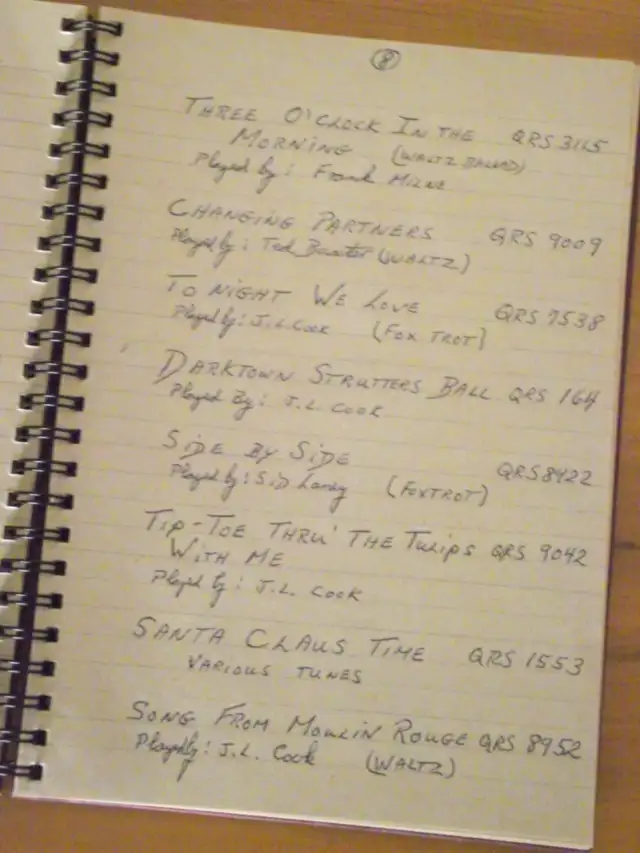 8
THREE O'CLOCK IN THE QRS 3115
MORNING (WALTZ BALLAD)
Played by: Frank Milne
CHANGING PARTNERS QRS 9009
Played by: Ted Baxter (WALTZ)
TO NIGHT WE LOVE QRS 7538
Played by: J.L. Cook (FOX TROT)
DARKTOWN STRUTTERS BALL QRS 164
Played By: J.L. Cook
SIDE BY SIDE QRS 8922
Played by: SID Laney (FOXTROT)
TIP-TOE THRU' THE TULIPS QRS 9042
WITH ME
Played by: J.L. COOK
SANTA CLAUS TIME QRS 1553
VARIOUS TUNES
SONG FROM MOULIN ROUGE QRS 8952
Played by: J.L. Cook (WALTZ)